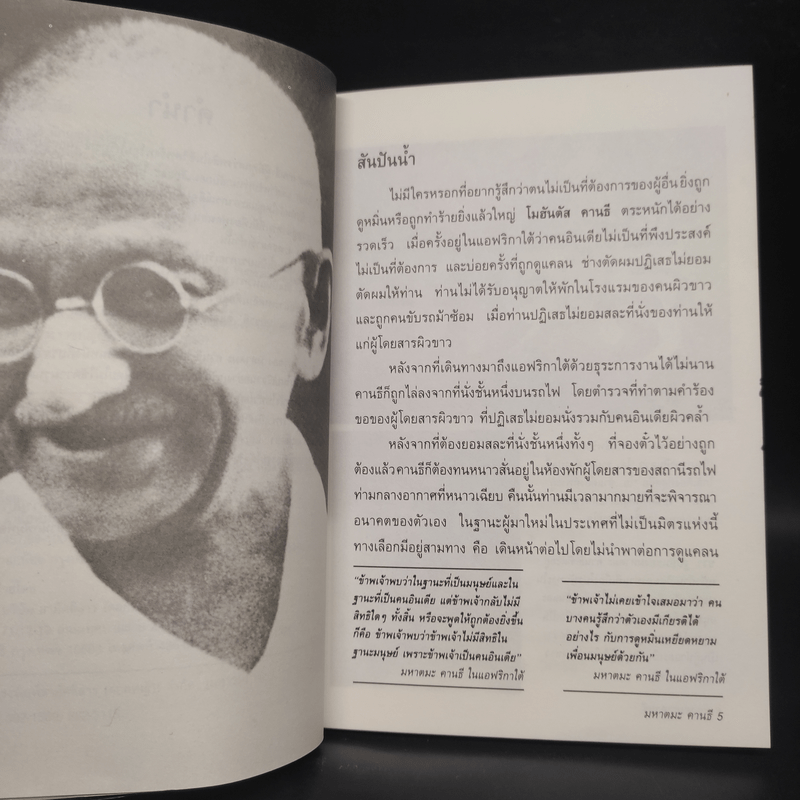 คำนำ
สันปันน้ำ
ไม่มีใครหรอกที่อยากรู้สึกว่าตนไม่เป็นที่ต้องการของผู้อื่น ยิ่งถูก
ดูหมิ่นหรือถูกทำร้ายยิ่งแล้วใหญ่ โมฮันดัส คานธี ตระหนักได้อย่าง
รวดเร็ว เมื่อครั้งอยู่ในแอฟริกาใต้ว่าคนอินเดียไม่เป็นที่พึงประสงค์
ไม่เป็นที่ต้องการ และบ่อยครั้งที่ถูกดูแคลน ช่างตัดผมปฏิเสธไม่ยอม
ตัดผมให้ท่าน ท่านไม่ได้รับอนุญาตให้พักในโรงแรมของคนผิวขาว
และถูกคนขับรถม้าซ้อม เมื่อท่านปฏิเสธไม่ยอมสละที่นั่งของท่านให้
แก่ผู้โดยสารผิวขาว
หลังจากที่เดินทางมาถึงแอฟริกาใต้ด้วยธุระการงานได้ไม่นาน
คานธีก็ถูกไล่ลงจากที่นั่งชั้นหนึ่งบนรถไฟ โดยตำรวจที่ทำตามคำร้อง
ขอของผู้โดยสารผิวขาว ที่ปฏิเสธไม่ยอมนั่งรวมกับคนอินเดียผิวคล้ำ
หลังจากที่ต้องยอมสละที่นั่งชั้นหนึ่งทั้งๆ ที่จองตั๋วไว้อย่างถูก
ต้องแล้วคานธีก็ต้องทนหนาวสั่นอยู่ในห้องพักผู้โดยสารของสถานีรถไฟ
ท่ามกลางอากาศที่หนาวเฉียบ คืนนั้นท่านมีเวลามากมายที่จะพิจารณา
อนาคตของตัวเอง ในฐานะผู้มาใหม่ในประเทศที่ไม่เป็นมิตรแห่งนี้
ทางเลือกมีอยู่สามทาง คือ เดินหน้าต่อไปโดยไม่นำพาต่อการดูแคลน
"ข้าพเจ้าพบว่าในฐานะที่เป็นมนุษย์และใน
ฐานะที่เป็นคนอินเดีย แต่ข้าพเจ้ากลับไม่มี
สิทธิใดๆ ทั้งสิ้น หรือจะพูดให้ถูกต้องยิ่งขึ้น
ก็คือ ข้าพเจ้าพบว่าข้าพเจ้าไม่มีสิทธิใน
ฐานะมนุษย์ เพราะข้าพเจ้าเป็นคนอินเดีย"
มหาตมะ คานธี ในแอฟริกาใต้
"ข้าพเจ้าไม่เคยเข้าใจเสมอมาว่า คน
บางคนรู้สึกว่าตัวเองมีเกียรติได้
อย่างไร กับการดูหมิ่นเหยียดหยาม
เพื่อนมนุษย์ด้วยกัน"
มหาตมะ คานธี ในแอฟริกาใต้
มหาตมะ คานธี 5